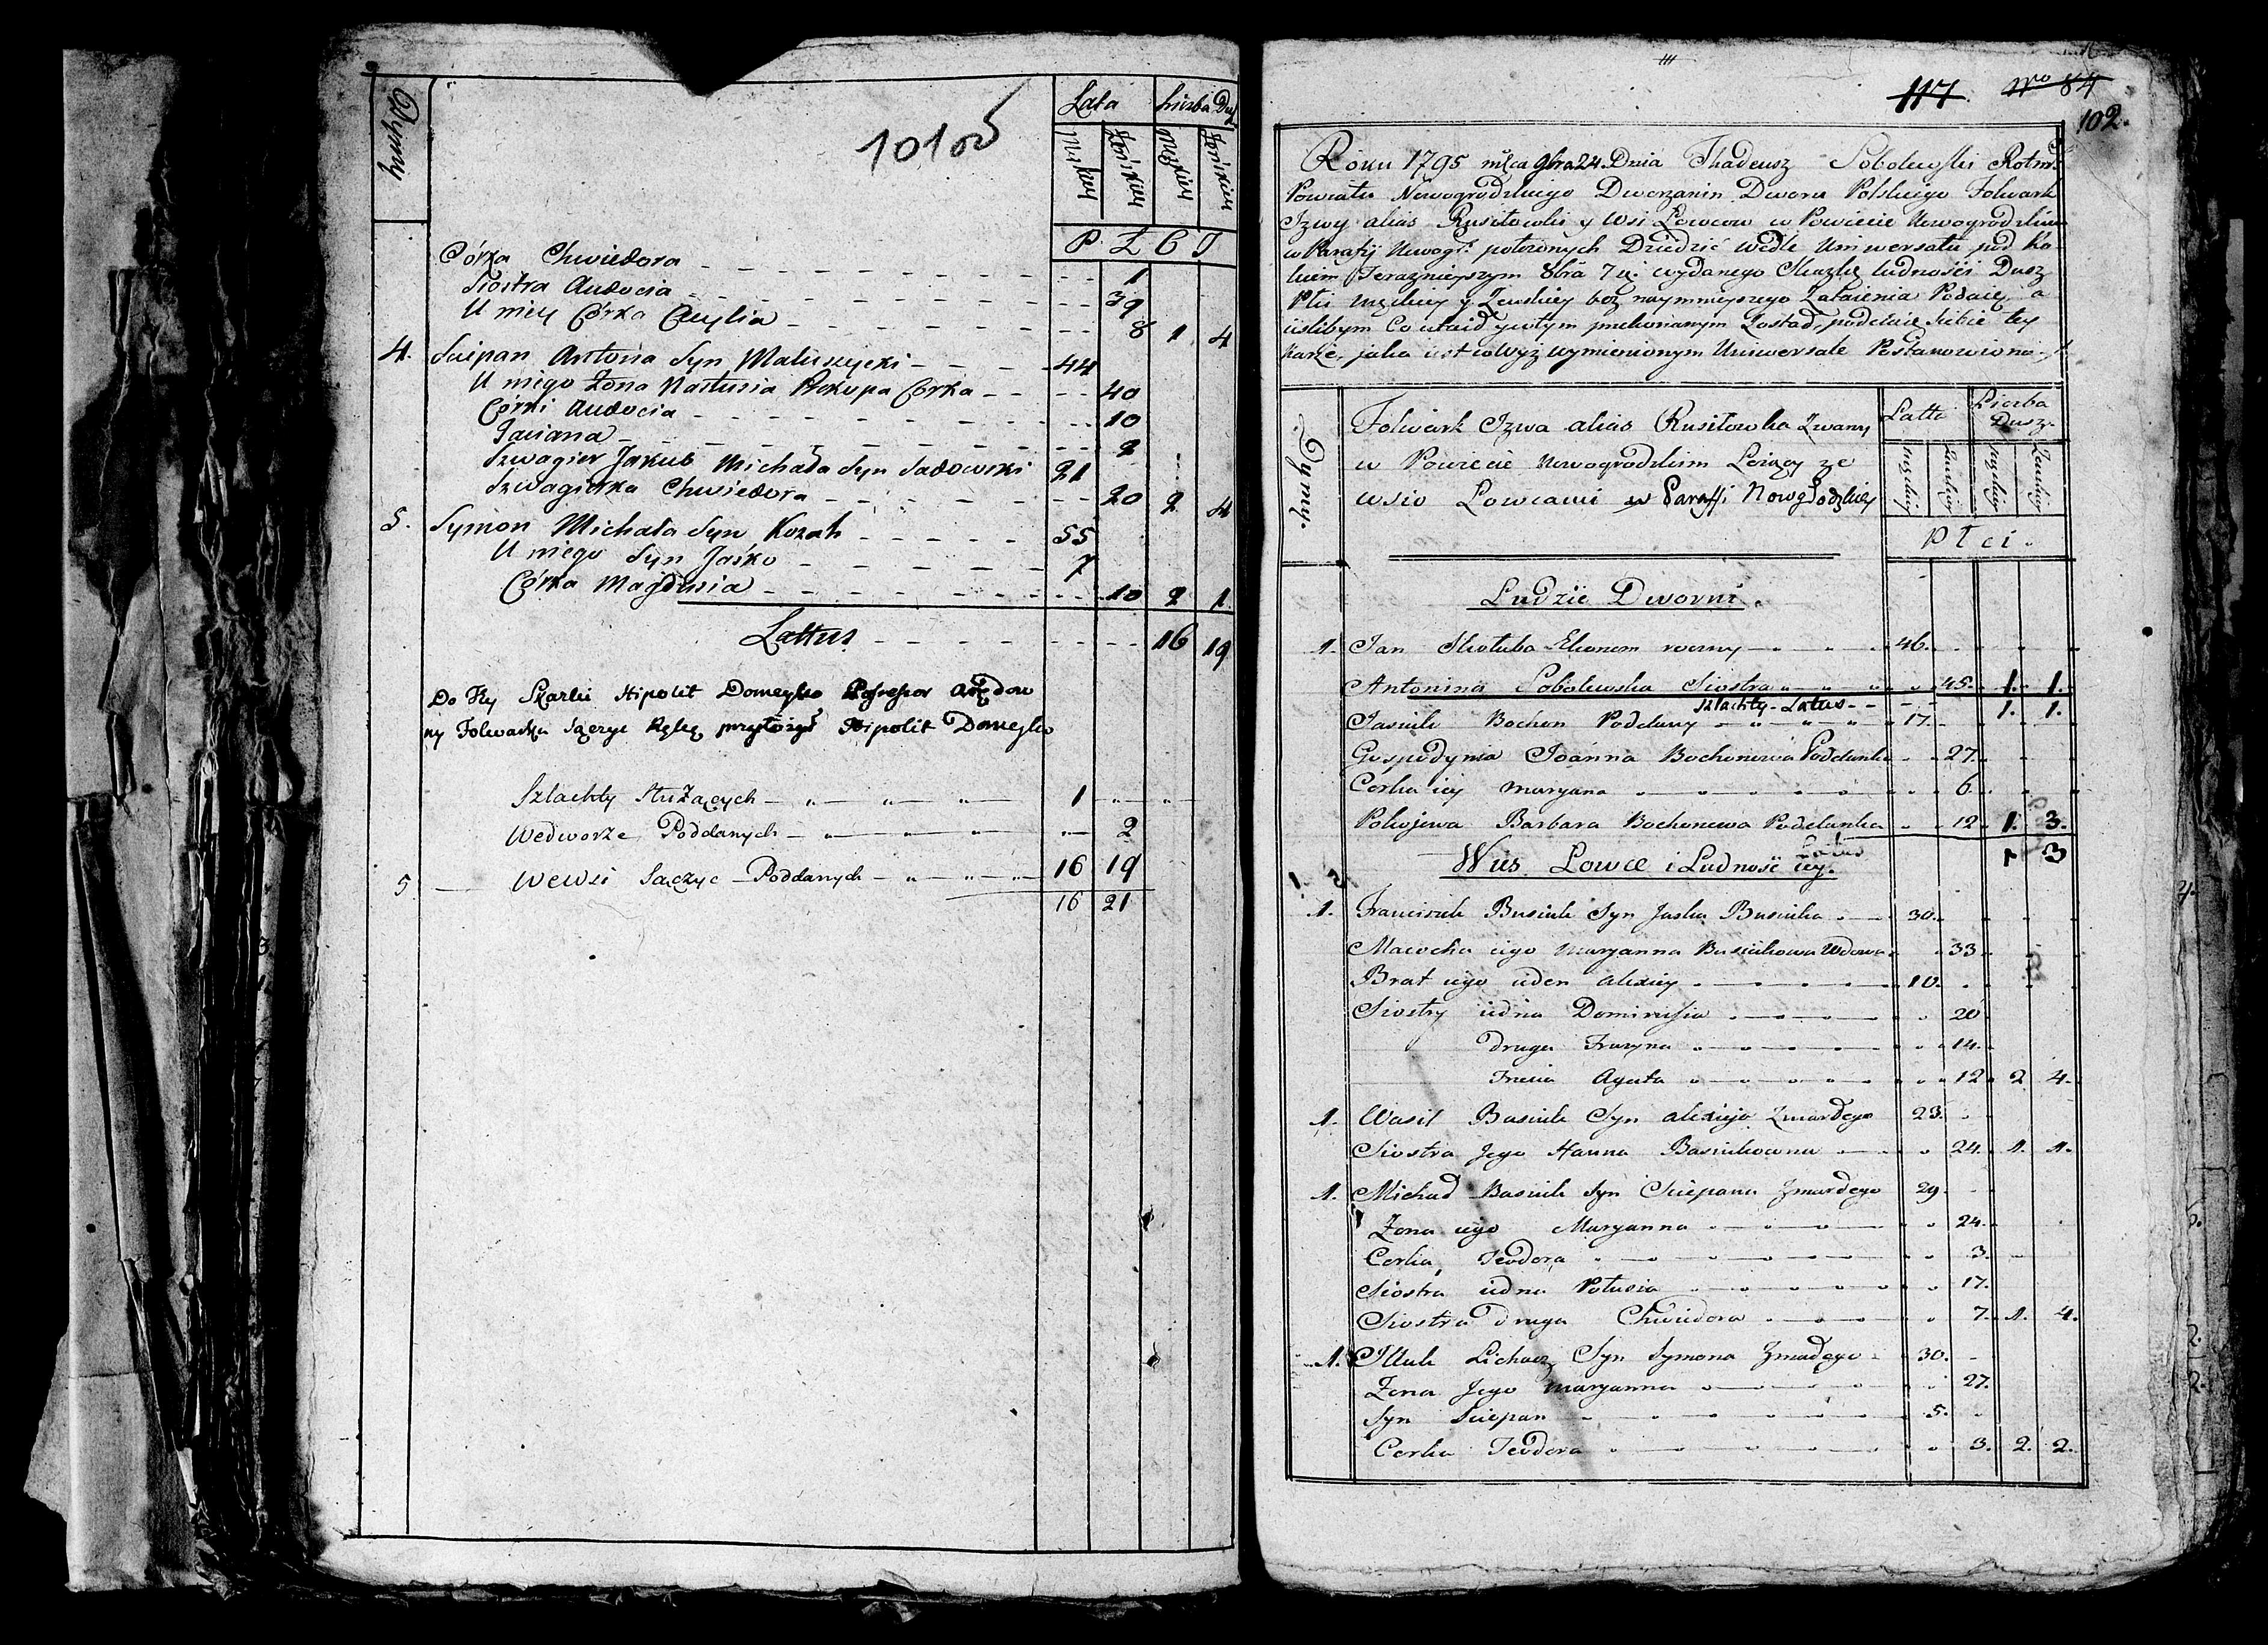 101об
Dymy
Lata Liczba Dusz
Męzkiey Żeńskiey Męzkiey Żeńskiey
P Ł C I
Córka Chwiedora 1
Siostra Audocia 39
U niey Córka Cecylia 8 1 4
4. Sciepan Antona Syn Maluszycki 44
U niego Żona Nastusia Prokopa Córka 40
Córki Audocia 10
Taciana 2
Szwagier Jakub Michała Syn Sadowski 21
Szwagierka Chwiedora 20 2 4
5. Symon Michała Syn Kozak 55
U niego Syn Jaśko 7
Córka Magdusia 10 2 1
Lattus 16 19
Do tey Skazki Hipolit Domeyko Possessor Arędow
ny Folwarku Sączyc Rękę przyłożył Hipolit Domeyko
Szlachty Służących 1
Wedworze Poddanych 2
5 Wewsi Sączyc Poddanych 16 19
16 21
117. No 84
102.
Roku 1795 mca 9bra 24 Dnia Thadeusz Sobolewski Rotm:
Powiatu Nowogrodzkiego Dworzanin Dworu Polskiego Folwark
Izwy alias Rusiłowki y Wsi Łowcow w Powiecie Nowogrodzkim
w Parafij Nowogr: położonych Dziedzic wedle Uniwersału pod ro-
kiem Teraznieyszym 8bra 7 wydanego Skazkę ludności Dusz
Płci męzkiey y Żenskiey bez naymnieyszego Zataienia Podaię, a
ieslibym Co utaił y otym przekonanym Został, poddaię Siebie tey
Karze, jaka iest w wyż wymienionym Uniwersale Postanowiona.
Dymy.
Folwark Izwa alias Rusiłowka Zwany
w Powiecie Nowogrodzkim Leżący ze
wsią Łowcami w Parafii Nowogrodzkiey
Latta Liczba Dusz.
męzkiey Żenskiey męzkiey Żenskiey
Płci.
Ludzie Dworni.
1. Jan Skotuba Ekonom roczny 46.
Antonina Sobolewska Siostra 45. 1. 1.
Szlachty Latus 1. 1.
Jasiuk Bochon Poddany 17.
Gospodynia Joanna Bochonowa Poddanka 27.
Corka iey Maryana 6.
Pokojowa Barbara Bochonowa Poddanka 12. 1. 3.
Latus 1 3
Wies Łowce i Ludność iey.
1. Franciszek Busiuk Syn Jaska Busiuka 30.
Macocha iego Maryanna Busiukowa Wdowa 33.
Brat iego ieden Alexiey 10.
Siostry iedna Dominisia 20
druga Fruzyna 14.
Trzecia Agata 12. 2 4.
1. Wasil Basiuk Syn Alexieja Zmarłego 23.
Siostra Jego Hanna Basiukowna 24. 1. 1.
1. Michał Basiuk Syn Sciepana Zmarłego 29.
Zona iego Maryanna 24.
Corka Teodora 3.
Siostra iedna Połusia 17.
Siostra druga Chwiedora 7. 1. 4.
1. Illuk Lichacz Syn Symona Zmarłego 30.
Zona Jego Maryanna 27.
Syn Sciepan 5.
Corka Teodora 3. 2. 2.